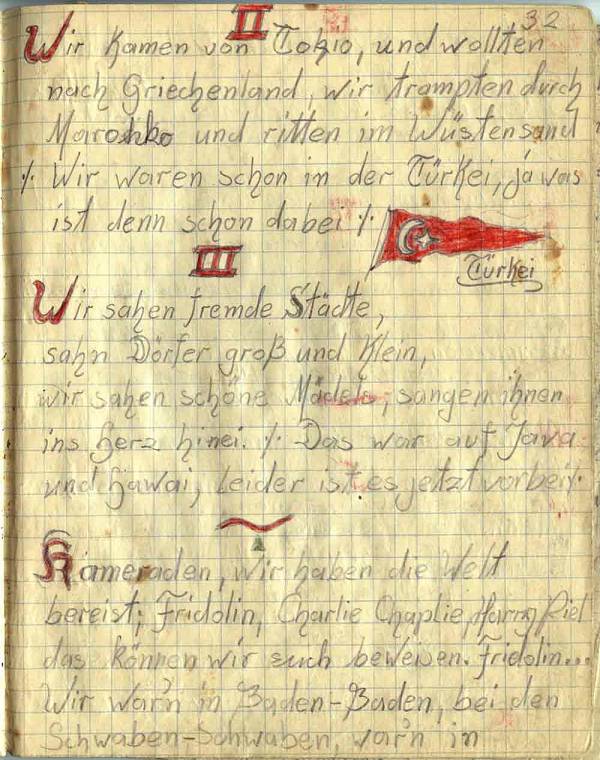 32
II
Wir kamen von Tokio, und wollten
nach Griechenland, wir trampten durch
Marokko und ritten im Wüstensand
·/. Wir waren schon in der Türkei, ja was
ist denn schon dabei ·/.
Türkei
III
Wir sahen fremde Städte,
sahn Dörfer groß und klein,
wir sahen schöne Mädels, sangen ihnen
ins Herz hinei. ·/. Das war auf Java
und Hawai, leider ist es jetzt vorbei ·/.
Kameraden, wir haben die Welt
bereist; Fridolin, Charlie Chaplie, Harry Piel
das können wir euch beweisen. Fridolin...
Wir war'n in Baden-Baden, bei den
Schwaben-Schwaben, war'n in